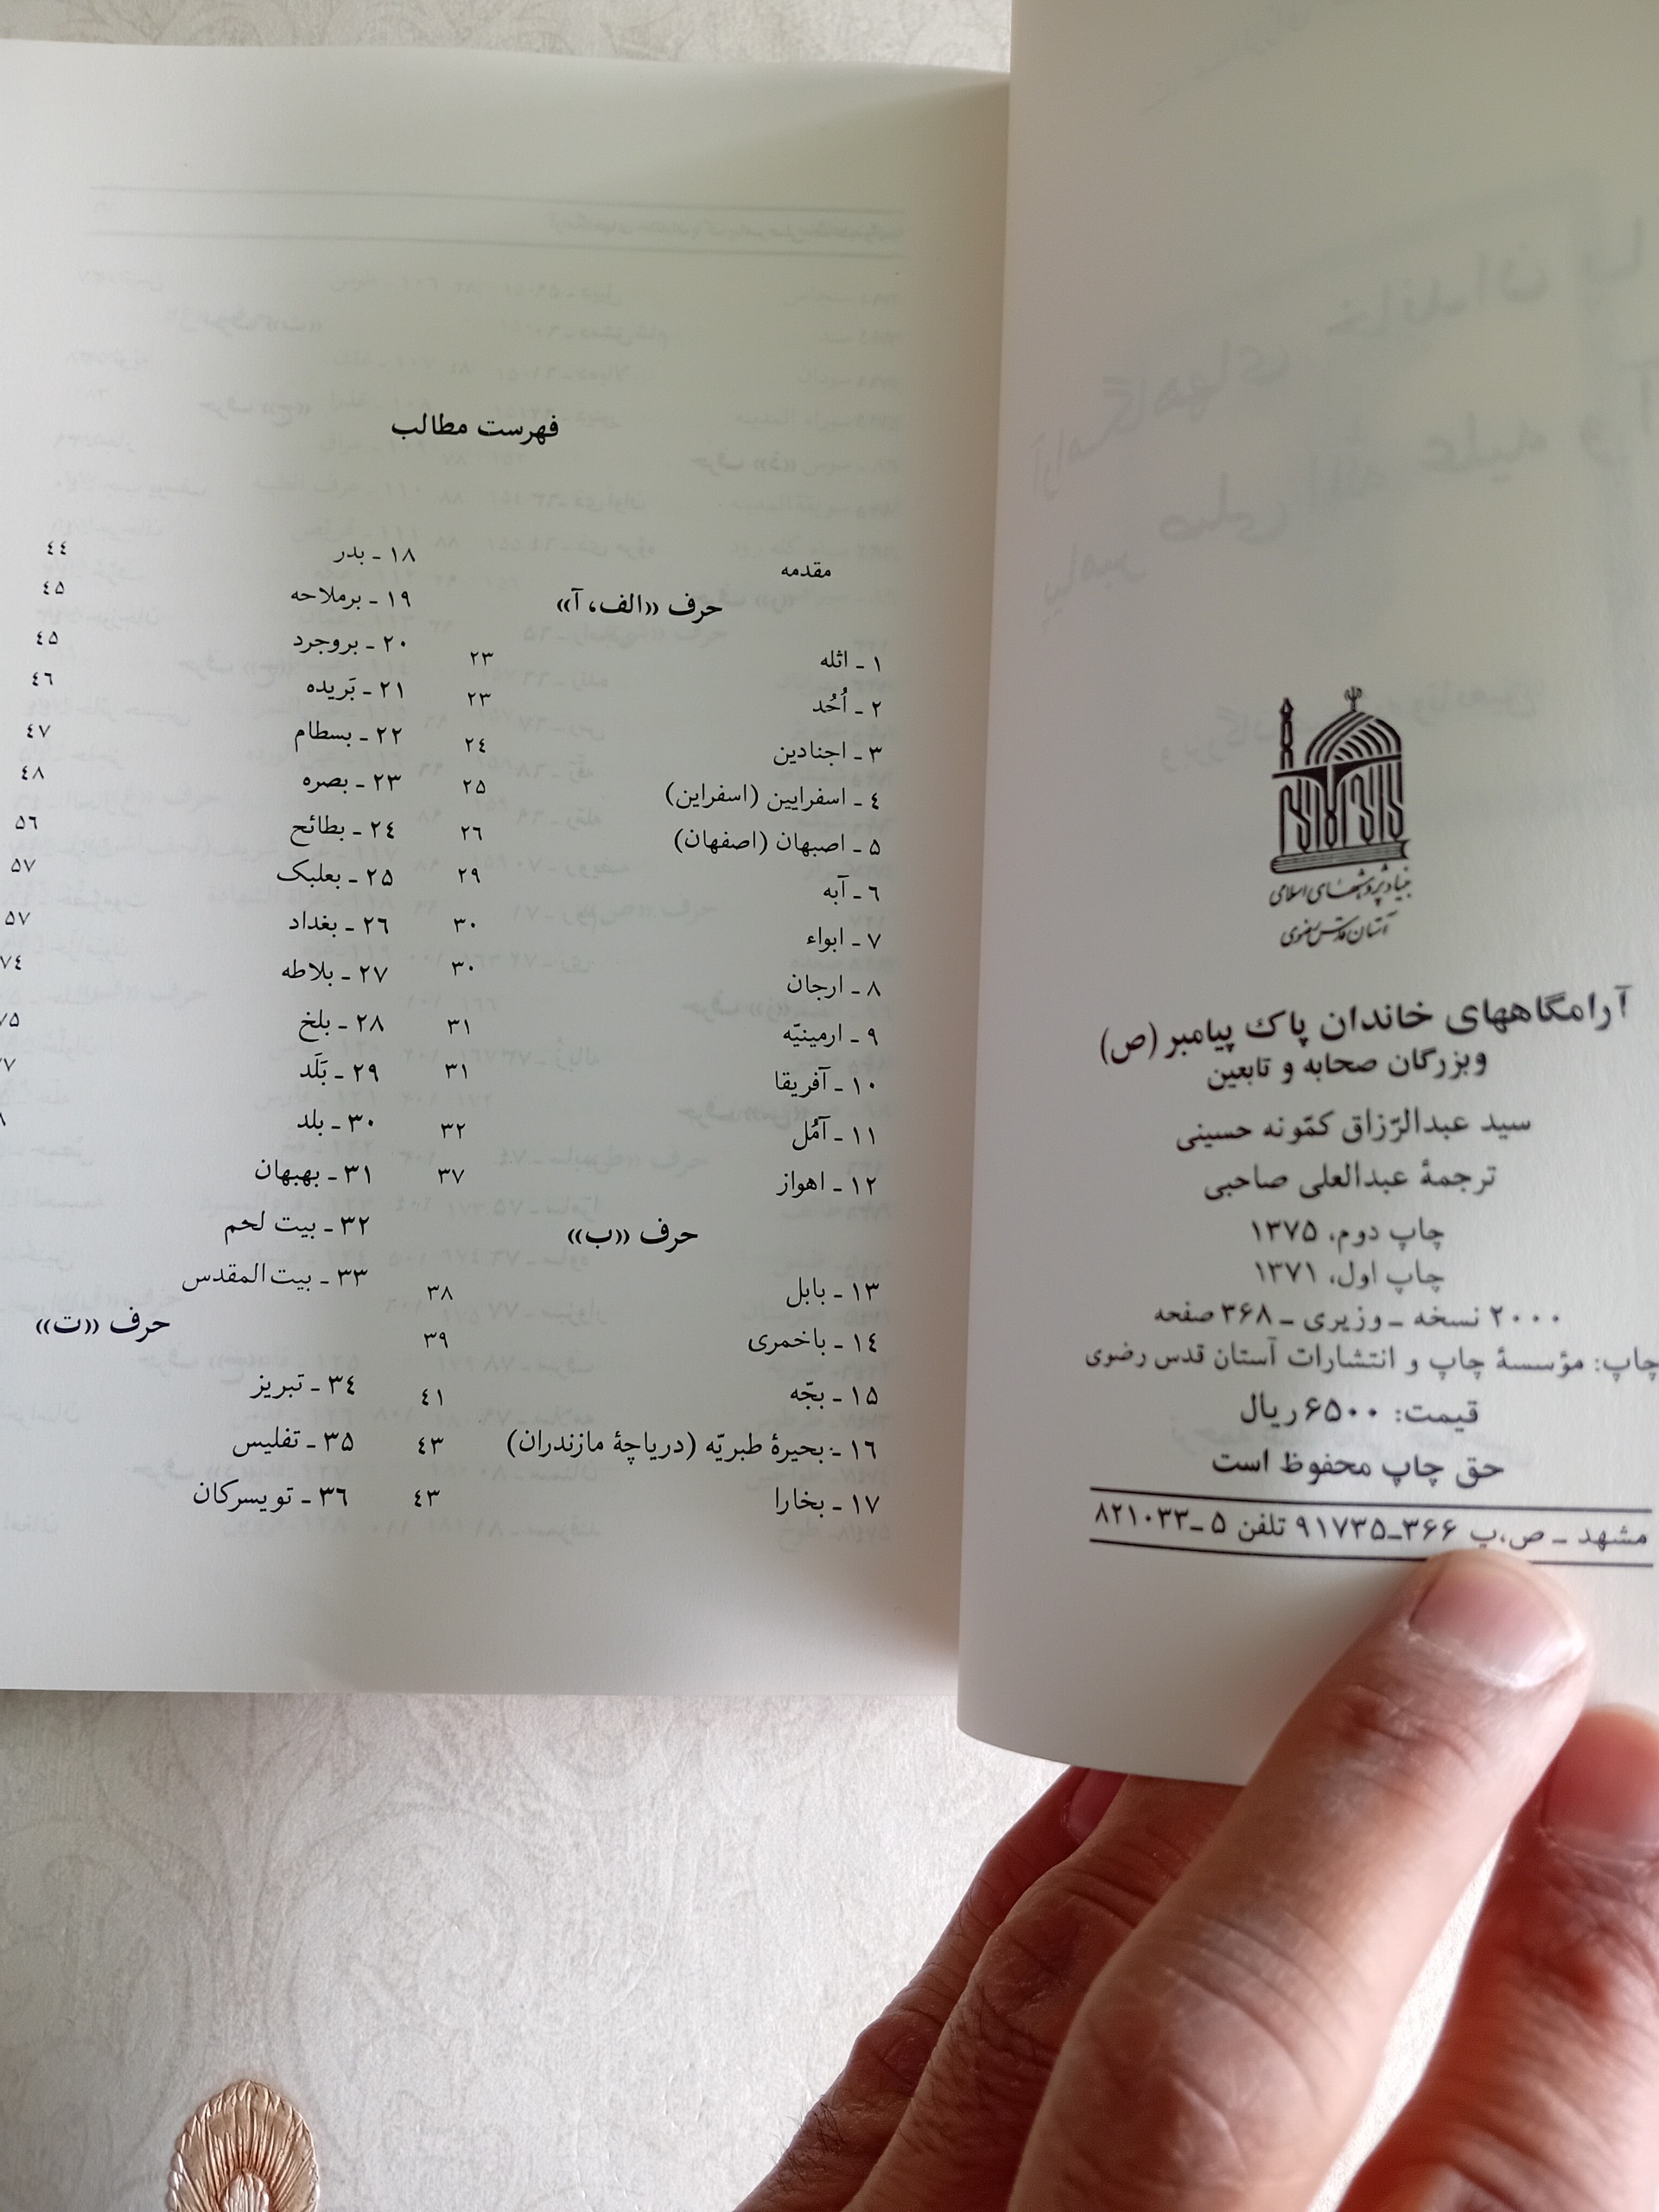 بنیاد پژوهشهای اسلامی
آستان قدس رضوی
آرامگاههای خاندان پاك پیامبر (ص)
وبزرگان صحابه و تابعین
سید عبدالرّزاق کمّونه حسینی
ترجمهٔ عبدالعلی صاحبی
چاپ دوم، ۱۳۷۵
چاپ اول، ۱۳۷۱
۲۰۰۰ نسخه ـ وزیری ـ ۳۶۸ صفحه
چاپ: مؤسسهٔ چاپ و انتشارات آستان قدس رضوی
قیمت: ۶۵۰۰ ریال
حق چاپ محفوظ است
مشهد ـ ص.پ ۳۶۶ـ۹۱۷۳۵ تلفن ۵ ـ۸۲۱۰۳۳
فهرست مطالب
مقدمه
حرف «الف، آ»
۱ ـ اثله ۲۳
۲ ـ اُحُد ۲۳
۳ ـ اجنادین ۲٤
٤ ـ اسفرایین (اسفراین) ۲۵
۵ ـ اصبهان (اصفهان) ۲٦
٦ ـ آبه ۲۹
۷ ـ ابواء ۳۰
۸ ـ ارجان ۳۰
۹ ـ ارمینیّه ۳۱
۱۰ ـ آفریقا ۳۱
۱۱ ـ آمُل ۳۲
۱۲ ـ اهواز ۳۷
حرف «ب»
۱۳ ـ بابل ۳۸
۱٤ ـ باخمری ۳۹
۱۵ ـ بجّه ٤۱
۱٦ ـ بحیرهٔ طبریّه (دریاچهٔ مازندران) ٤۳
۱۷ ـ بخارا ٤۳
۱۸ ـ بدر ٤٤
۱۹ ـ برملاحه ٤۵
۲۰ ـ بروجرد ٤۵
۲۱ ـ بَریده ٤٦
۲۲ ـ بسطام ٤۷
۲۳ ـ بصره ٤۸
۲٤ ـ بطائح ۵٦
۲۵ ـ بعلبک ۵۷
۲٦ ـ بغداد ۵۷
۲۷ ـ بلاطه ۷٤
۲۸ ـ بلخ ۷۵
۲۹ ـ بَلَد
۳۰ ـ بلد
۳۱ ـ بهبهان
۳۲ ـ بیت لحم
۳۳ ـ بیت‌المقدس
حرف «ت»
۳٤ ـ تبریز
۳۵ ـ تفلیس
۳٦ ـ تویسرکان